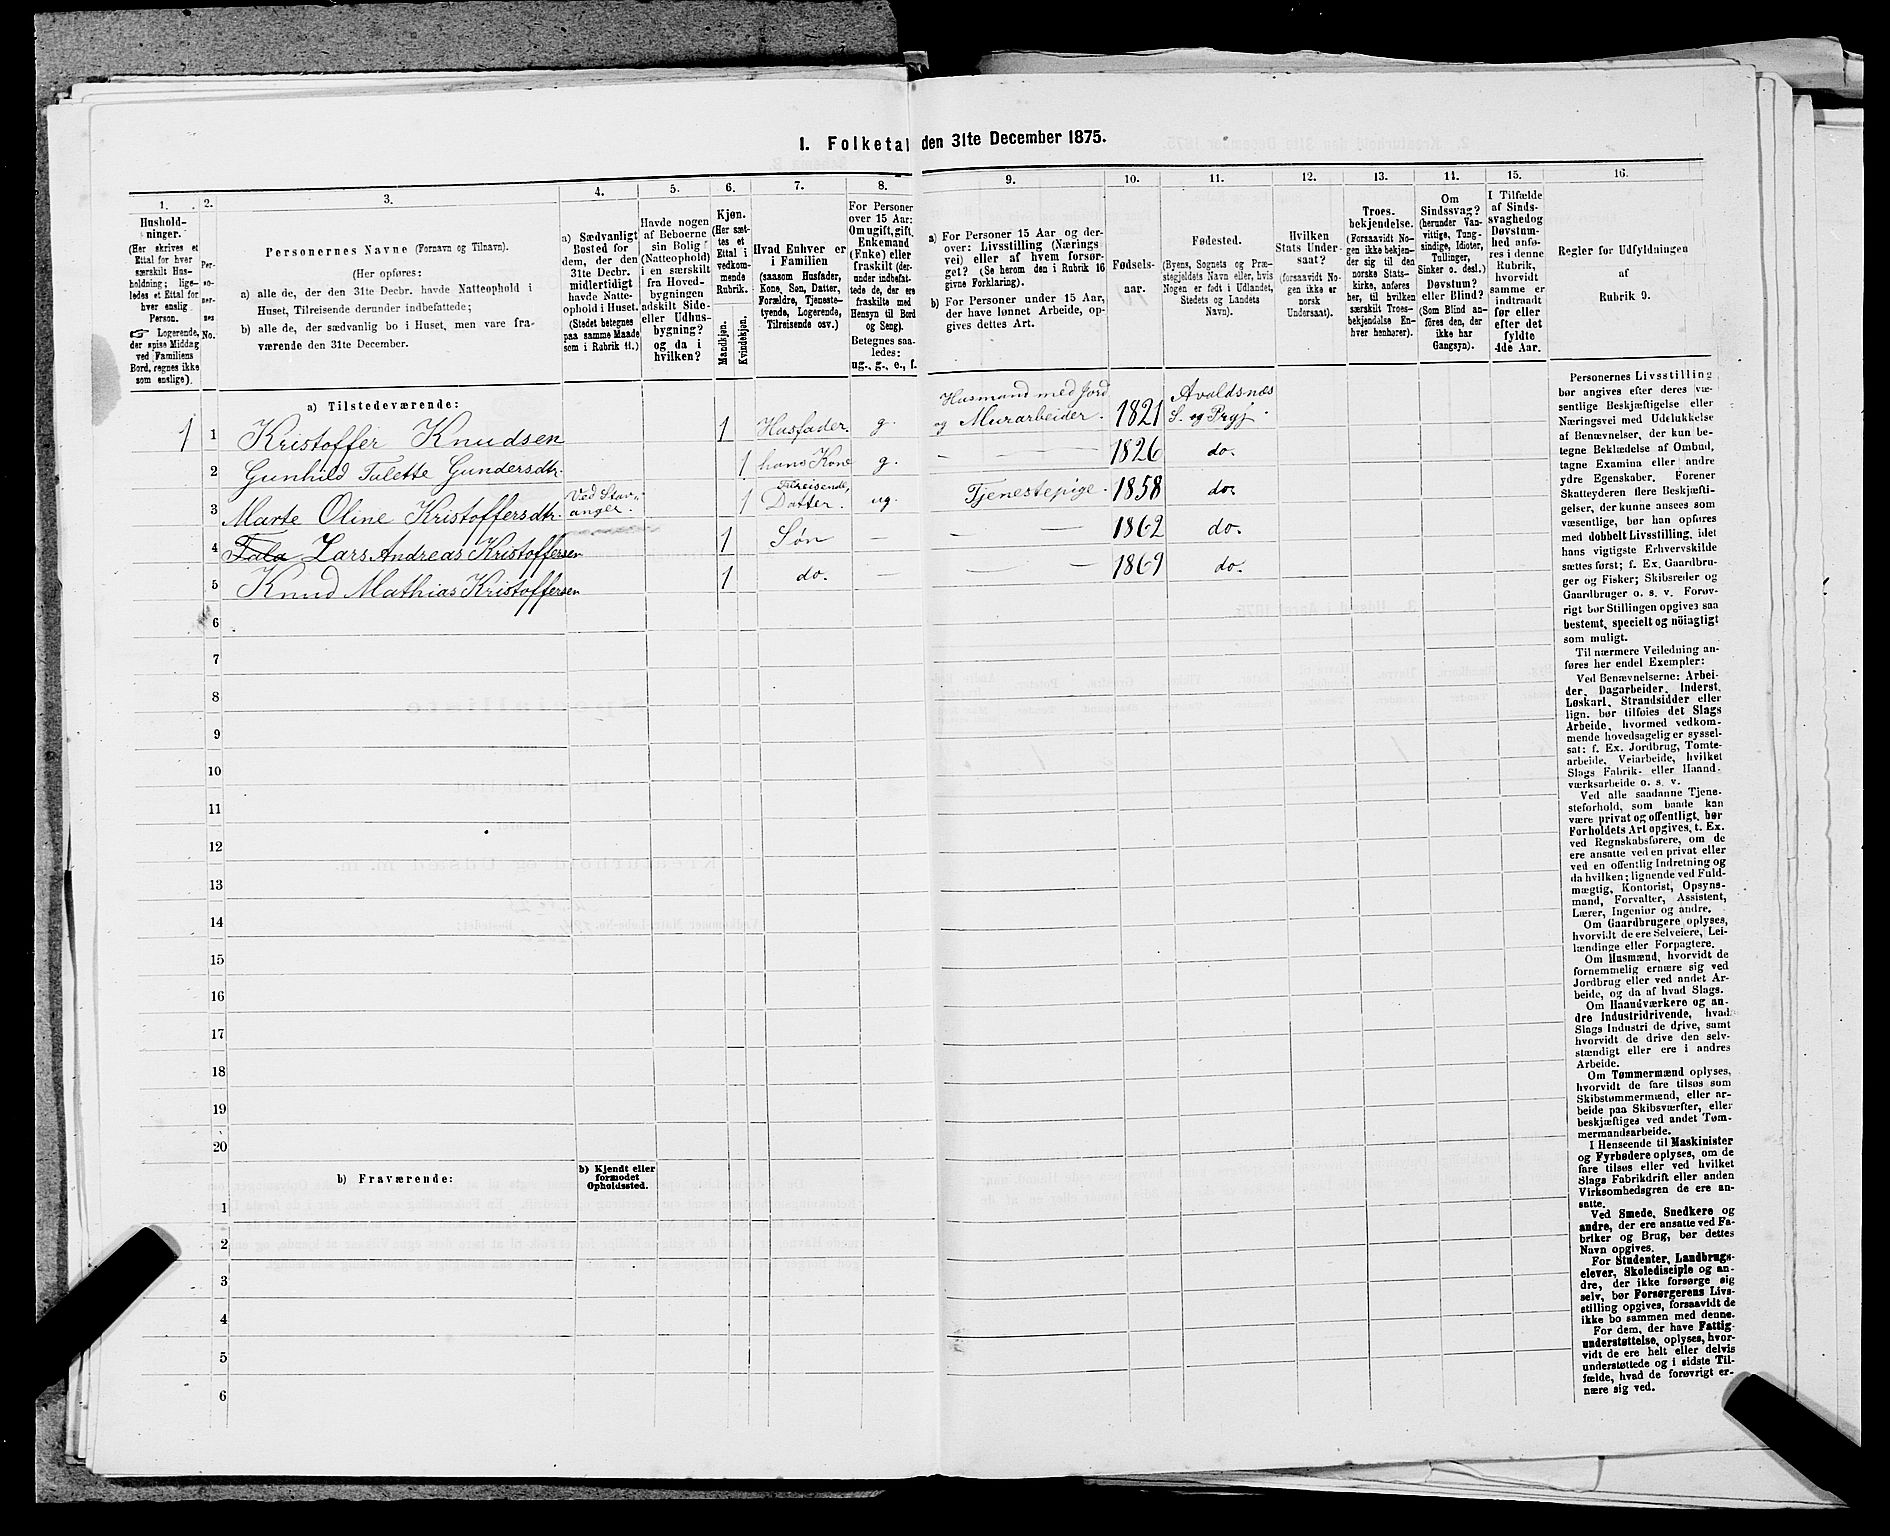 I. Folketal den 31te December 1875.
1.
2.
3.
4.
5.
6.
7.
8.
9.
10.
11.
12.
13.
11.
15.
16.
Hushold-
ninger.
(Her skrives et
Ettal for hver
særskilt Hus-
holdning; lige-
ledes et Ettal for
hver enslig
Person.
☞ Logerende,
der spise Middag
ved Familiens
Bord, regnes ikke
som enslige).
Per-
so-
ner-
nes
No.
Personernes Navne (Fornavn og Tilnavn).
(Her opføres:
a) alle de, der den 31te Decbr. havde Natteophold i
Huset, Tilreisende derunder indbefattede;
b) alle de, der sædvanlig bo i Huset, men vare fra-
værende den 31te December.
a) Sædvanligt
Bosted for
dem, der den
31te Decbr.
midlertidigt
havde Natte-
ophold i Huset.
(Stedet betegnes
paa samme Maade
som i Rubrik 11.)
Havde nogen
af Beboerne
sin Bolig
(Natteophold)
i en særskilt
fra Hoved-
bygningen
adskilt Side-
eller Udhus-
bygning?
og da i
hvilken?
Kjøn.
(Her sæt-
tes et
Ettal i
vedkom-
mende
Rubrik.
Mandkjøn.
Kvindekjøn.
Hvad Enhver er
i Familien
(saasom Husfader,
Kone, Søn, Datter,
Forældre, Tjeneste-
tyende, Logerende,
Tilreisende osv.)
For Personer
over 15 Aar:
Om ugift, gift,
Enkemand
(Enke) eller
fraskilt (der-
under indbefat-
tede de, der ere
fraskilte med
Hensyn til Bord
og Seng).
Betegnes saa-
ledes:
ug., g., e., f.
a) For Personer 15 Aar og der-
over: Livsstilling (Nærings-
vei) eller af hvem forsør-
get? (Se herom den i Rubrik 16
givne Forklaring).
b) For Personer under 15 Aar,
der have lønnet Arbeide, op-
gives dettes Art.
Fødsels-
aar.
Fødested.
(Byens, Sognets og Præ-
stegjeldets Navn eller, hvis
Nogen er født i Udlandet,
Stedets og Landets
Navn).
Hvilken
Stats Under-
saat?
(forsaavidt No-
gen ikke er
norsk
Undersaat).
Troes-
bekjendelse.
(Forsaavidt No-
gen ikke bekjen-
der sig til den
norske Stats-
kirke, anføres
her, til hvilken
særskilt Troes-
bekjendelse En-
hver henhører).
Om
Sindssvag?
(herunder Van-
vittige, Tung-
sindige, Idioter,
Tullinger,
Sinker o. desl.)
Døvstum?
eller Blind?
(Som Blind an-
føres den, der
ikke har
Gangsyn).
I Tilfælde
af Sinds-
svaghed og
Døvstum-
hed anfø-
res i denne
Rubrik,
hvorvidt
samme er
indtraadt
før eller
efter det
fyldte
4de Aar.
Regler for Udfyldningen
af
Rubrik 9.
a) Tilstedeværende:
1 1 Kristoffer Knudsen 1 Husfader. g. Husmand med Jord og Murarbeider. 1821 Avaldsnæs S. og Prgj.
2 Gunhild Talette Gundersdtr. 1 hans Kone g. — 1826 do.
3 Marte Oline Kristoffersdtr. Ved Stavanger. 1 Tilreisende, Datter. ug. Tjenestepige. 1858 do.
4 Lars Andreas Kristoffersen 1 Søn — — 1862 do.
5 Knud Mathias Kristoffersen 1 do. — — 1869 do.
6
7
8
9
10
11
12
13
14
15
16
17
18
19
20
b) Fraværende:
b) Kjendt eller
formodet
Opholdssted.
1
2
3
4
5
6
Personernes Livsstilling
bør angives efter deres væ-
sentlige Beskjæftigelse eller
Næringsvei med Udelukkelse
af Benævnelser, der kun be-
tegne Beklædelse af Ombud,
tagne Examina eller andre
ydre Egenskaber. Forener
Skatteyderen flere Beskjæfti-
gelser, der kunne ansees som
væsentlige, bør han opføres
med dobbelt Livsstilling, idet
hans vigtigste Erhvervskilde
sættes først; f. Ex. Gaardbru-
ger og Fisker; Skibsreder og
Gaardbruger o. s. v. Forøv-
rigt bør Stillingen opgives saa
bestemt, specielt og nöiagtigt
som muligt.
Til nærmere Veiledning an-
føres her endel Exempler:
Ved Benævnelserne: Arbei-
der, Dagarbeider, Inderst,
Løskarl, Strandsidder eller
lign. bør tilføies det Slags
Arbeide, hvormed vedkom-
mende hovedsagelig er syssel-
sat: f. Ex. Jordbrug, Tomte-
arbeide, Veiarbeide, hvilket
Slags Fabrik- eller Haand-
værksarbeide o. s. v.
Ved alle saadanne Tjene-
steforhold, som baade kan
være privat og offentligt, bør
Forholdets Art opgives, t. Ex.
ved Regnskabsførere, om de
ere ansatte ved en privat eller
ved en offentlig Indretning og
da hvilken; lignende ved Fuld-
mægtig, Kontorist, Opsyns-
mand, Forvalter, Assistent,
Lærer, Ingeniør og andre.
Om Gaardbrugere oplyses,
hvorvidt de ere Selveiere, Lei-
lændinge eller Forpagtere.
Om Husmænd, hvorvidt de
fornemmelig ernære sig ved
Jordbrug eller ved andet Ar-
beide, og da af hvad Slags.
Om Haandværkere og an-
dre Industridrivende, hvad
Slags Industri de drive, samt
hvorvidt de drive den selv-
stændigt eller ere i andres
Arbeide.
Om Tømmermænd oplyses,
hvorvidt de fare tilsøs som
Skibstømmermænd, eller ar-
beide paa Skibsværfter, eller
beskjæftiges ved andet Tøm-
mermandsarbeide.
I Henseende til Maskinister
og Fyrbødere oplyses, om de
fare tilsøs eller ved hvilket
Slags Fabrikdrift eller anden
Virksomhedsgren de ere an-
satte.
Ved Smede, Snedkere og
andre, der ere ansatte ved Fa-
briker og Brug, bør dettes
Navn opgives.
For Studenter, Landbrugs-
elever, Skoledisciple og an-
dre, der ikke forsørge sig
selv, bør Forsørgerens Livs-
stilling opgives, forsaavidt de
ikke bo sammen med denne.
For dem, der have Fattig-
understøttelse, oplyses, hvor-
vidt de ere helt eller delvis
understøttede og i sidste Til-
fælde, hvad de forøvrigt er-
nære sig ved.